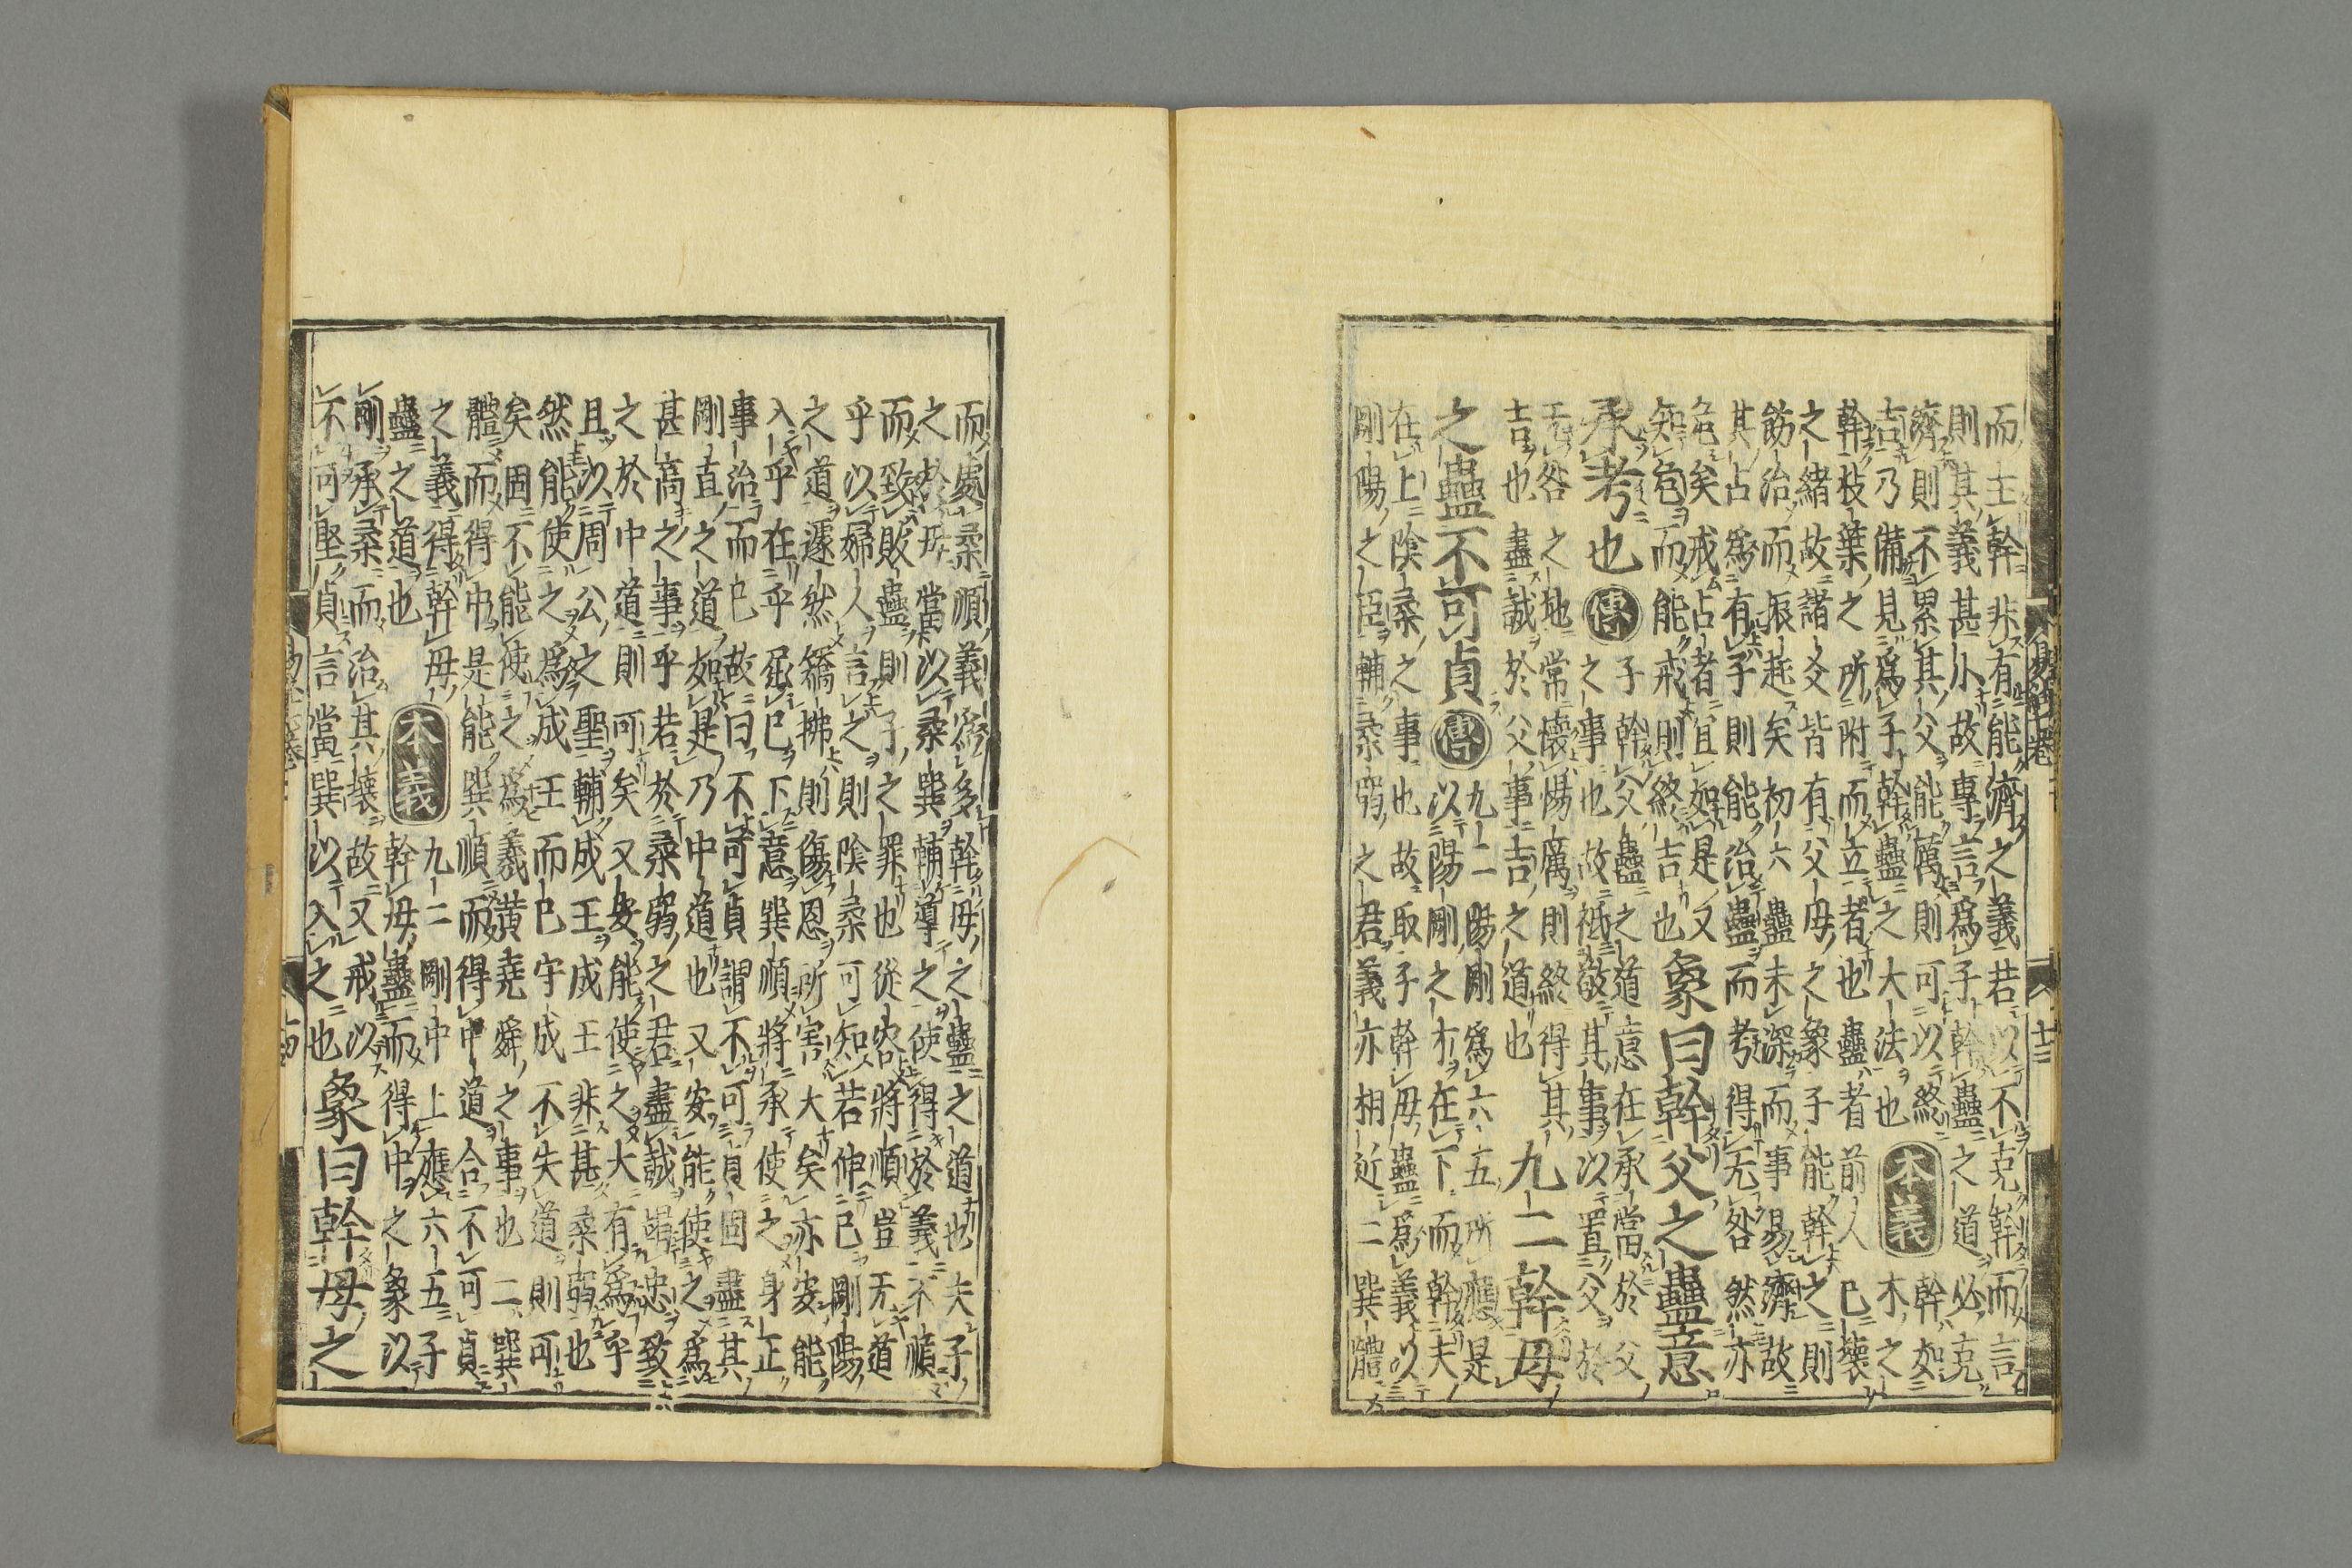 而主幹非有能濟之義若以不克幹而言
則其義甚小故專言爲子幹蠱之道必克
濟則不累其父能厲則可以終
吉乃備見爲子幹蠱之大法也
本義
幹如
木之
幹枝葉之所附而立者也蠱者前人已壞
之緒故諸爻皆有父母之象子能幹之則
飭治而振起矣初六蠱未深而事易濟故
其占爲有子則能治蠱而考得无咎然亦
危矣戒占者宜如是又
知危而能戒則終吉也
象曰幹父之蠱意
承考也
傳
子幹父蠱之道意在承當於父
之事也故祗敬其事以置父於
无咎之地常懷惕厲則終得其
吉也盡誠於父事吉之道也
九二幹母
之蠱不可貞
傳
九二陽剛爲六五所應是
以陽剛之才在下而幹夫
在上陰柔之事也故取子幹母蠱爲義以
剛陽之臣輔柔弱之君義亦相近二巽體
而處柔順義爲多幹母之蠱之道也夫子
之於母當以柔巽輔導之使得於義不順
而致敗蠱則子之罪也從容將順豈无道
乎以婦人言之則陰柔可知若伸己剛陽
之道遽然矯拂則傷恩所害大矣亦安能
入乎在乎屈己下意巽順將承使之身正
事治而已故曰不可貞謂不可貞固盡其
剛直之道如是乃中道也又安能使之爲
甚高之事乎若於柔弱之君盡誠竭忠致
之於中道則可矣又安能使之大有爲乎
且以周公之聖輔成王成王非甚柔弱也
然能使之爲成王而已守成不失道則可
矣固不能使之爲羲黃堯舜之事也二巽
體而得中是能巽順而得中道合不可貞
之義得幹母
蠱之道也
本義
九二剛中上應六五子
幹母蠱而得中之象以
剛承柔而治其壞故又戒以
不可堅貞言當巽以入之也
象曰幹母之